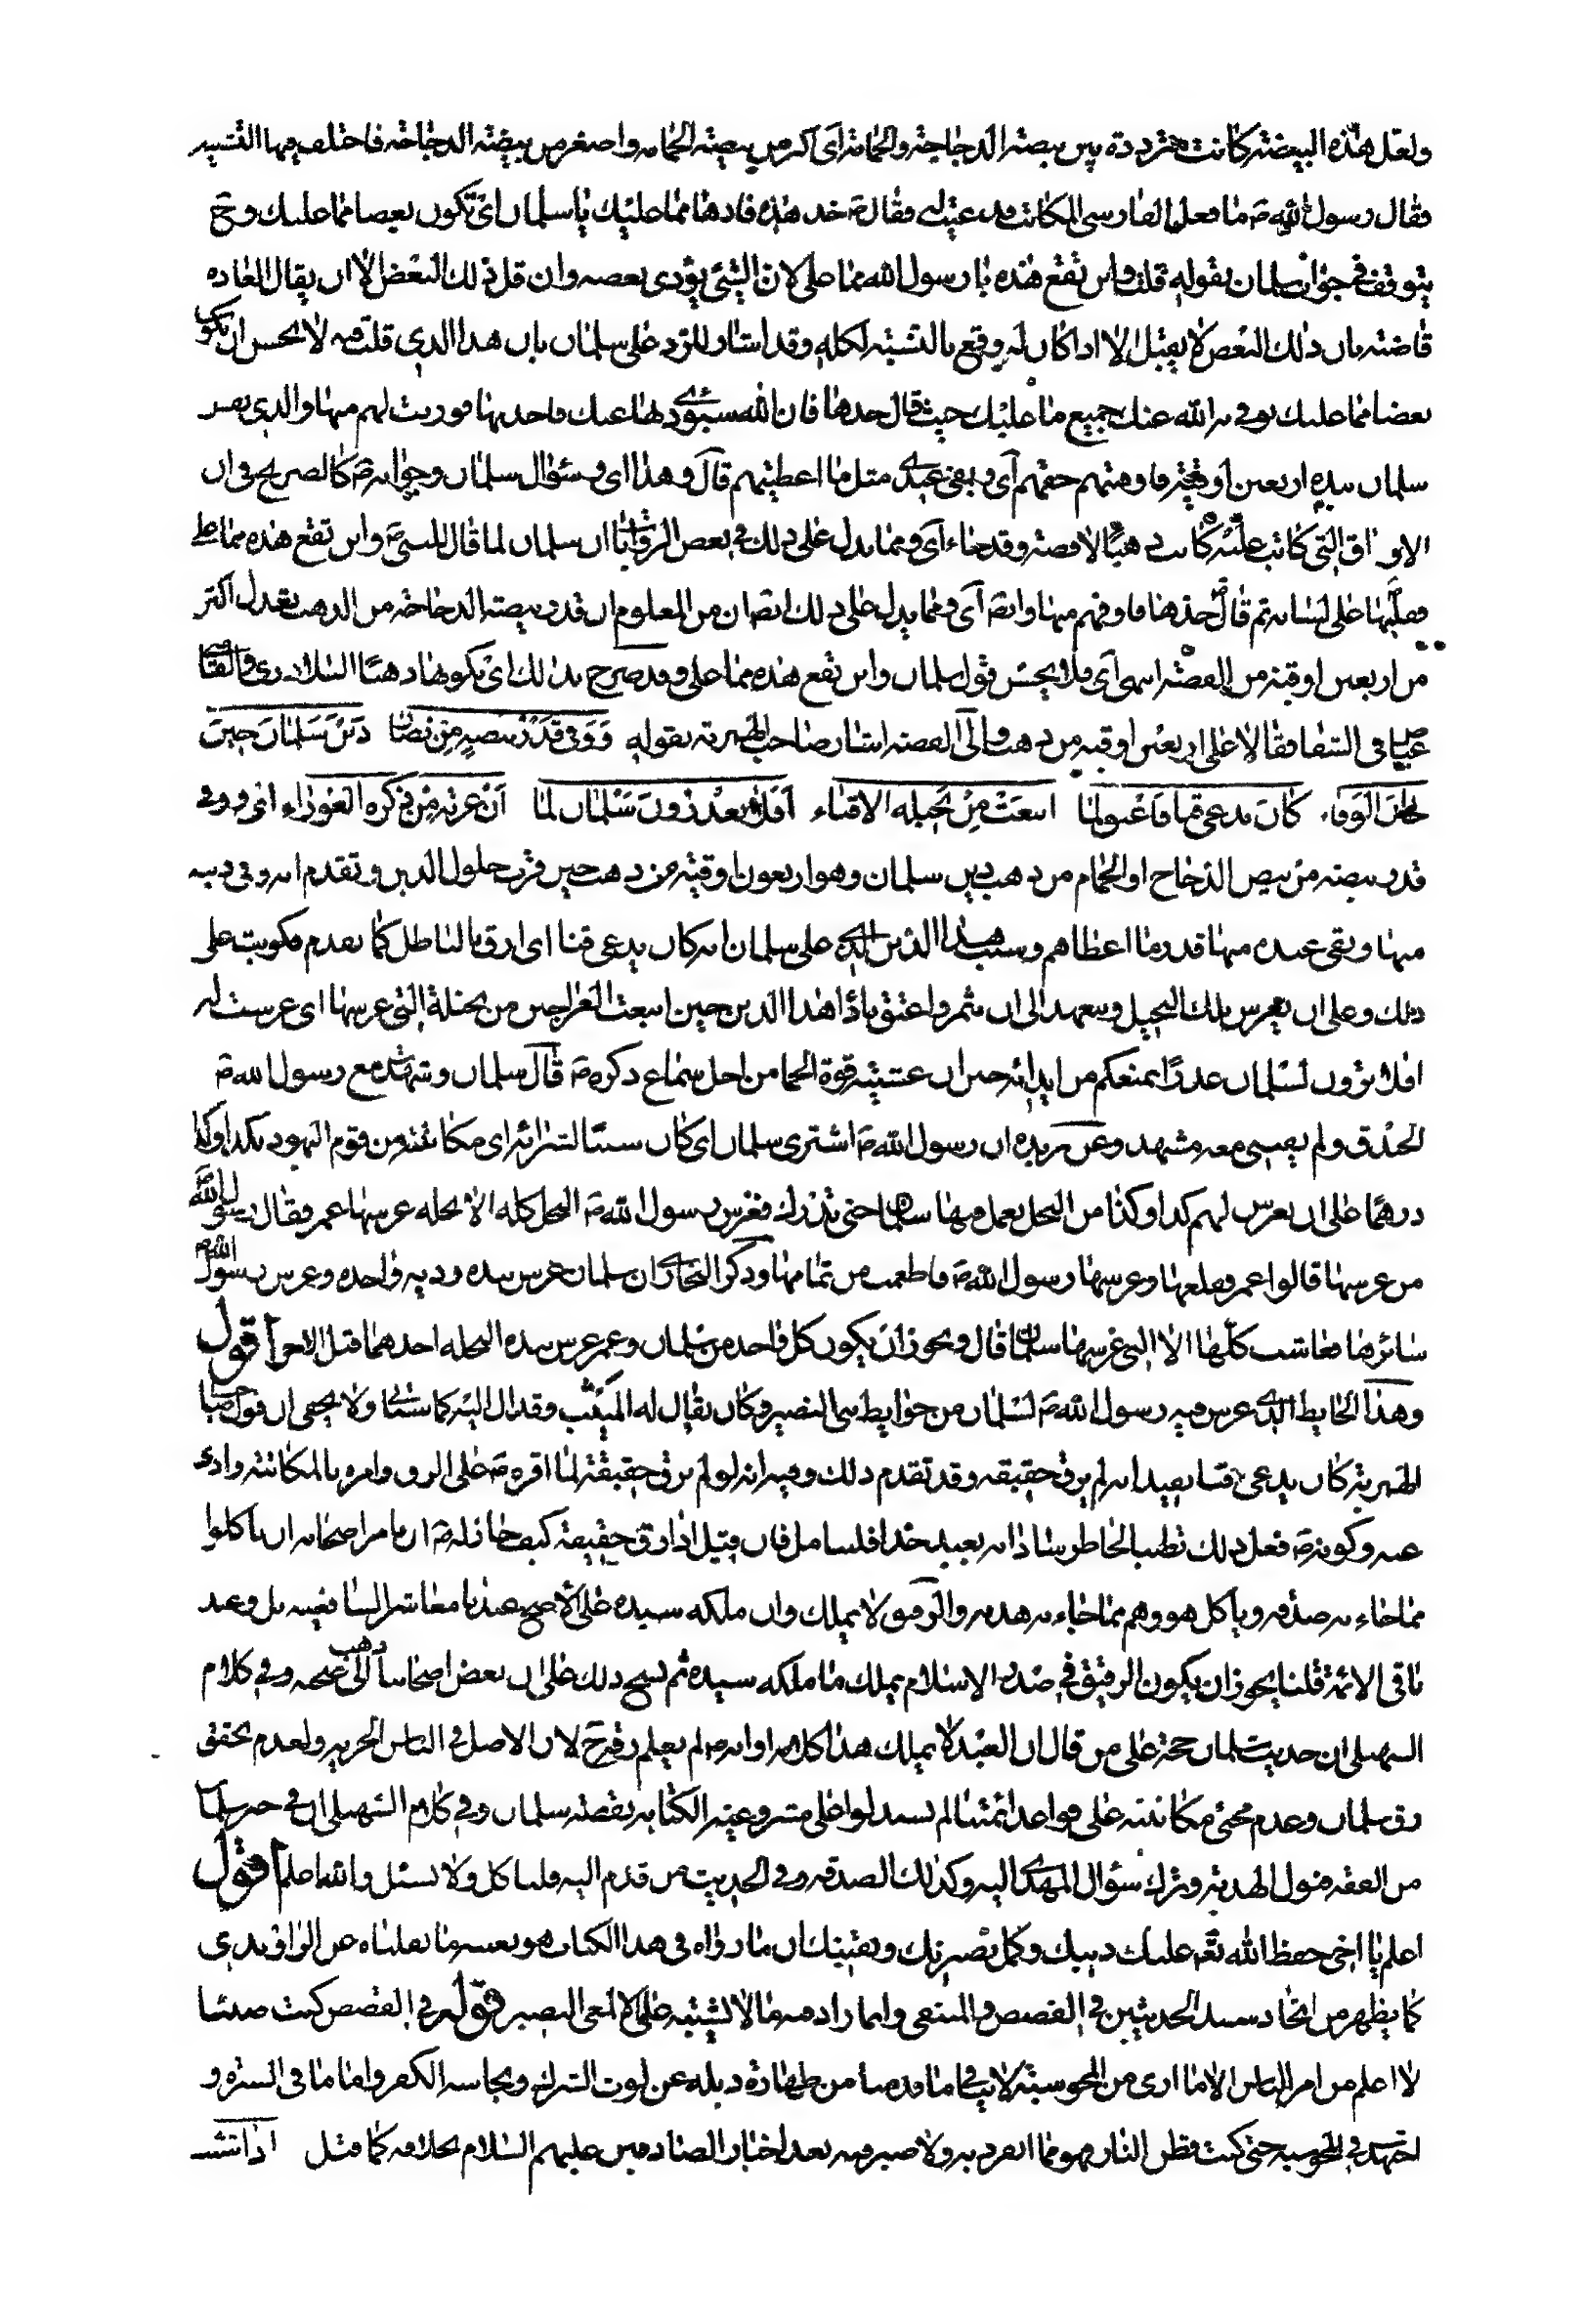 ولعل هذه البيضة كانت مترددة بين بيضة الدجاجة والحمامة اى اكبر من بيضة الحمامه واصغر من بيضة الدجاجة فاختلف فيها التشبيه
فقال رسول الله ص ما فعل الفارسى المكاتب فدعيت له فقال ص خذ هذه فادها مما عليك يا سلمان اى تكون بعضا مما عليك وح
يتوقف فى جواب سلمان بقوله قلت واين تقع هذه يا رسول الله مما على لان الشئ يؤدى بعضه وان قل ذلك البعض الا ان يقال العاده
قاضية بان ذلك البعض لا يقبل الا اذا كان له وقع بالنسبة لكله وقد اشار للرد على سلمان بان هذا الذى قلت فيه لا يحسن ان يكون
بعضا مما عليك يوفى به الله عنك جميع ما عليك حيث قال خذها فان الله سيؤدى بها عنك فاخذتها فوزنت لهم منها والذى نفس
سلمان بيده اربعين اوقية فاوفيتهم حقهم اى وبقى عندى مثل ما اعطيتهم قال وهذا اى سؤال سلمان وجوابه ص كالصريح فى ان
الاواق التى كاتب عليه كانت ذهبا لا فضة وقد جاء اى ومما يدل على ذلك فى بعض الروايات ان سلمان لما قال للنبى ص واين تقع هذه مما على
فقلبها على لسانه ثم قال خذها فاوفهم منها وايضا اى ومما يدل على ذلك ايضا ان من المعلوم ان قدر بيضة الدجاجة من الذهب يعدل اكثر
من اربعين اوقية من الفضة انتهى اى فلا يحسن قول سلمان واين تقع هذه مما على وقد صرح بذلك اى بكونها ذهبا البلاذرى والقاضى
عياض فى الشفا فقالا على اربعين اوقيه من ذهب والى القصه اشار صاحب الهمزية بقوله ووفى قدر بيضة من نضار دين سلمان حين
حان الوفاء كان يدعى قنا فاعتق لما اينعت من نخيله الاقناء افلا تعذرون سلمان لما ان عرته من ذكره العرواء اى ووفى
قدر بيضة من بيض الدجاج او الحمام من ذهب دين سلمان وهو اربعون اوقية من ذهب حين قرب حلول الدين وتقدم انه وفى دينه
منها وبقى عنده منها قدر ما اعطاهم وسبب هذا الدين الذى على سلمان انه كان يدعى قنا اى ارق بالباطل كما تقدم فكوتب على
ذلك وعلى ان يغرس تلك النخيل ويتعهدها الى ان تثمر واعتق باداء هذا الدين حين اينعت العراجين من نخلة التى غرسها اى غرست له
افلا ترون لسلمان عذرا يمنعكم من ايذائه حين ان غشيته قوة الحما من اجل سماع ذكره ص قال سلمان وشهدت مع رسول الله ص
الخندق ولم يفتنى معه مشهد وعن بريده ان رسول الله ص اشترى سلمان اى كان سببا لشرائه اى مكاتبته من قوم اليهود بكذا وكذا
درهما على ان يغرس لهم كذا وكذا من النخل يعمل فيها سلمان حتى تدرك فغرس رسول الله ص النخل كله الا نخله غرسها عمر فقال رسول الله
من غرسها قالوا عمر فقلعها وغرسها رسول الله ص فاطعمت من عامها وذكر البخارى ان سلمان غرس بيده وديه واحده وغرس رسول الله ص
سائرها فعاشت كلها الا التى غرسها سلمان قال ويجوز ان يكون كل واحد من سلمان وعمر غرس بيده النخله احدهما قبل الاخر اقول
وهذا الحايط الذى غرس فيه رسول الله ص لسلمان من حوايط بنى النضير وكان يقال له الميثب وقد ال اليه كما سياتى ولا يخفى ان قول صاحب
الهمزية كان يدعى قنا يفيد انه لم يرق حقيقه وقد تقدم ذلك وفيه انه لو لم يرق حقيقة لما اقره ص على الرق وامره بالمكاتبة وادى
عنه وكونه ص فعل ذلك تطييبا لخاطر ساداته بعيد جدا فليتامل فان قيل اذا رق حقيقة كيف جاز له ص ان يامر اصحابه ان ياكلوا
مما جاء به صدقه وياكل هو وهم مما جاء به هديه والرقيق لا يملك وان ملكه سيده على الاصح عندنا معاشر الشافعيه بل وعند
باقى الائمة قلنا يجوز ان يكون الرقيق فى صدر الاسلام يملك ما ملكه سيده ثم نسخ ذلك على ان بعض اصحابنا ذهب الى صحته وفى كلام
السهيلى ان حديث سلمان حجة على من قال ان العبد لا يملك هذا كلامه او انه ص لم يعلم رقه ح لان الاصل فى الناس الحريه ولعدم تحقق
رق سلمان وعدم مجئ مكاتبته على قواعد ائمتنا لم يستدلوا على مشروعية الكتابه بقصة سلمان وفى كلام السهيلى ان فى خبر سلمان
من الفقه قبول الهدية وترك سؤال المهدى اليه وكذلك الصدقه وفى الحديث من قدم اليه فلياكل ولا يسئل والله اعلم اقول
اعلم يا اخى حفظ الله تع عليك دينك وكمل بصيرتك ويقينك ان ما رواه فى هذا الكتاب هو بعينه ما نقلناه عن الراوندى
كما يظهر من اتحاد سند الحديثين فى القصص والمنتقى وانما زاد فيه ما لا يشتبه على الالمعى البصير قوله فى القصص كنت صبيا
لا اعلم من امر الناس الا ما ارى من المجوسية لا ينافى ما قدمنا من طهارة ذيله عن لوث الشرك ونجاسه الكفر واما ما فى السيرة و
اجتهدت فى المجوسيه حتى كنت قطن النار فهو مما انفرد به ولا ضير فيه بعد اخبار الصادقين عليهم السلام بخلافه كما قيل اذا شئـ